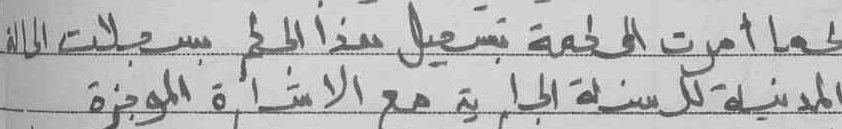 كما أمرت المحكمة بتسجيل هذا الحكم بسجلات الحالة
المدنية للسنة الجارية مع الاشارة الموجزة